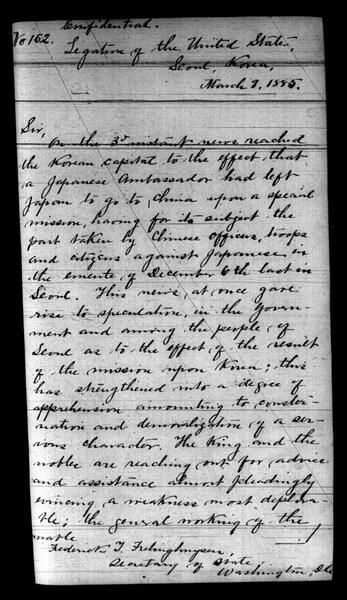 Confidential.
No 152.
Legation of the United States,
Seoul, Korea,
March 9, 1885.
Sir,
On the 3d instant news reached
the Korean capital to the effect that
a Japanese Ambassador had left
Japan to go to China upon a special
mission, having for its subject the
part taken by Chinese officers, troops
and citizens against Japanese in
the emeute of December 6th last in
Seoul. This news at once gave
rise to speculation, in the Govern-
ment and among the people of
Seoul as to the effect of the result
of the mission upon Korea; this
has strengthened into a degree of
apprehension amounting to conster-
nation and demoralization of a ser-
ious character. The King and the
nobles are reaching out for advice
and assistance almost pleadingly
evincing a weakness most deplora-
ble; the general working of the
Frederick T. Frelinghuysen,
Secretary of State
Washington,